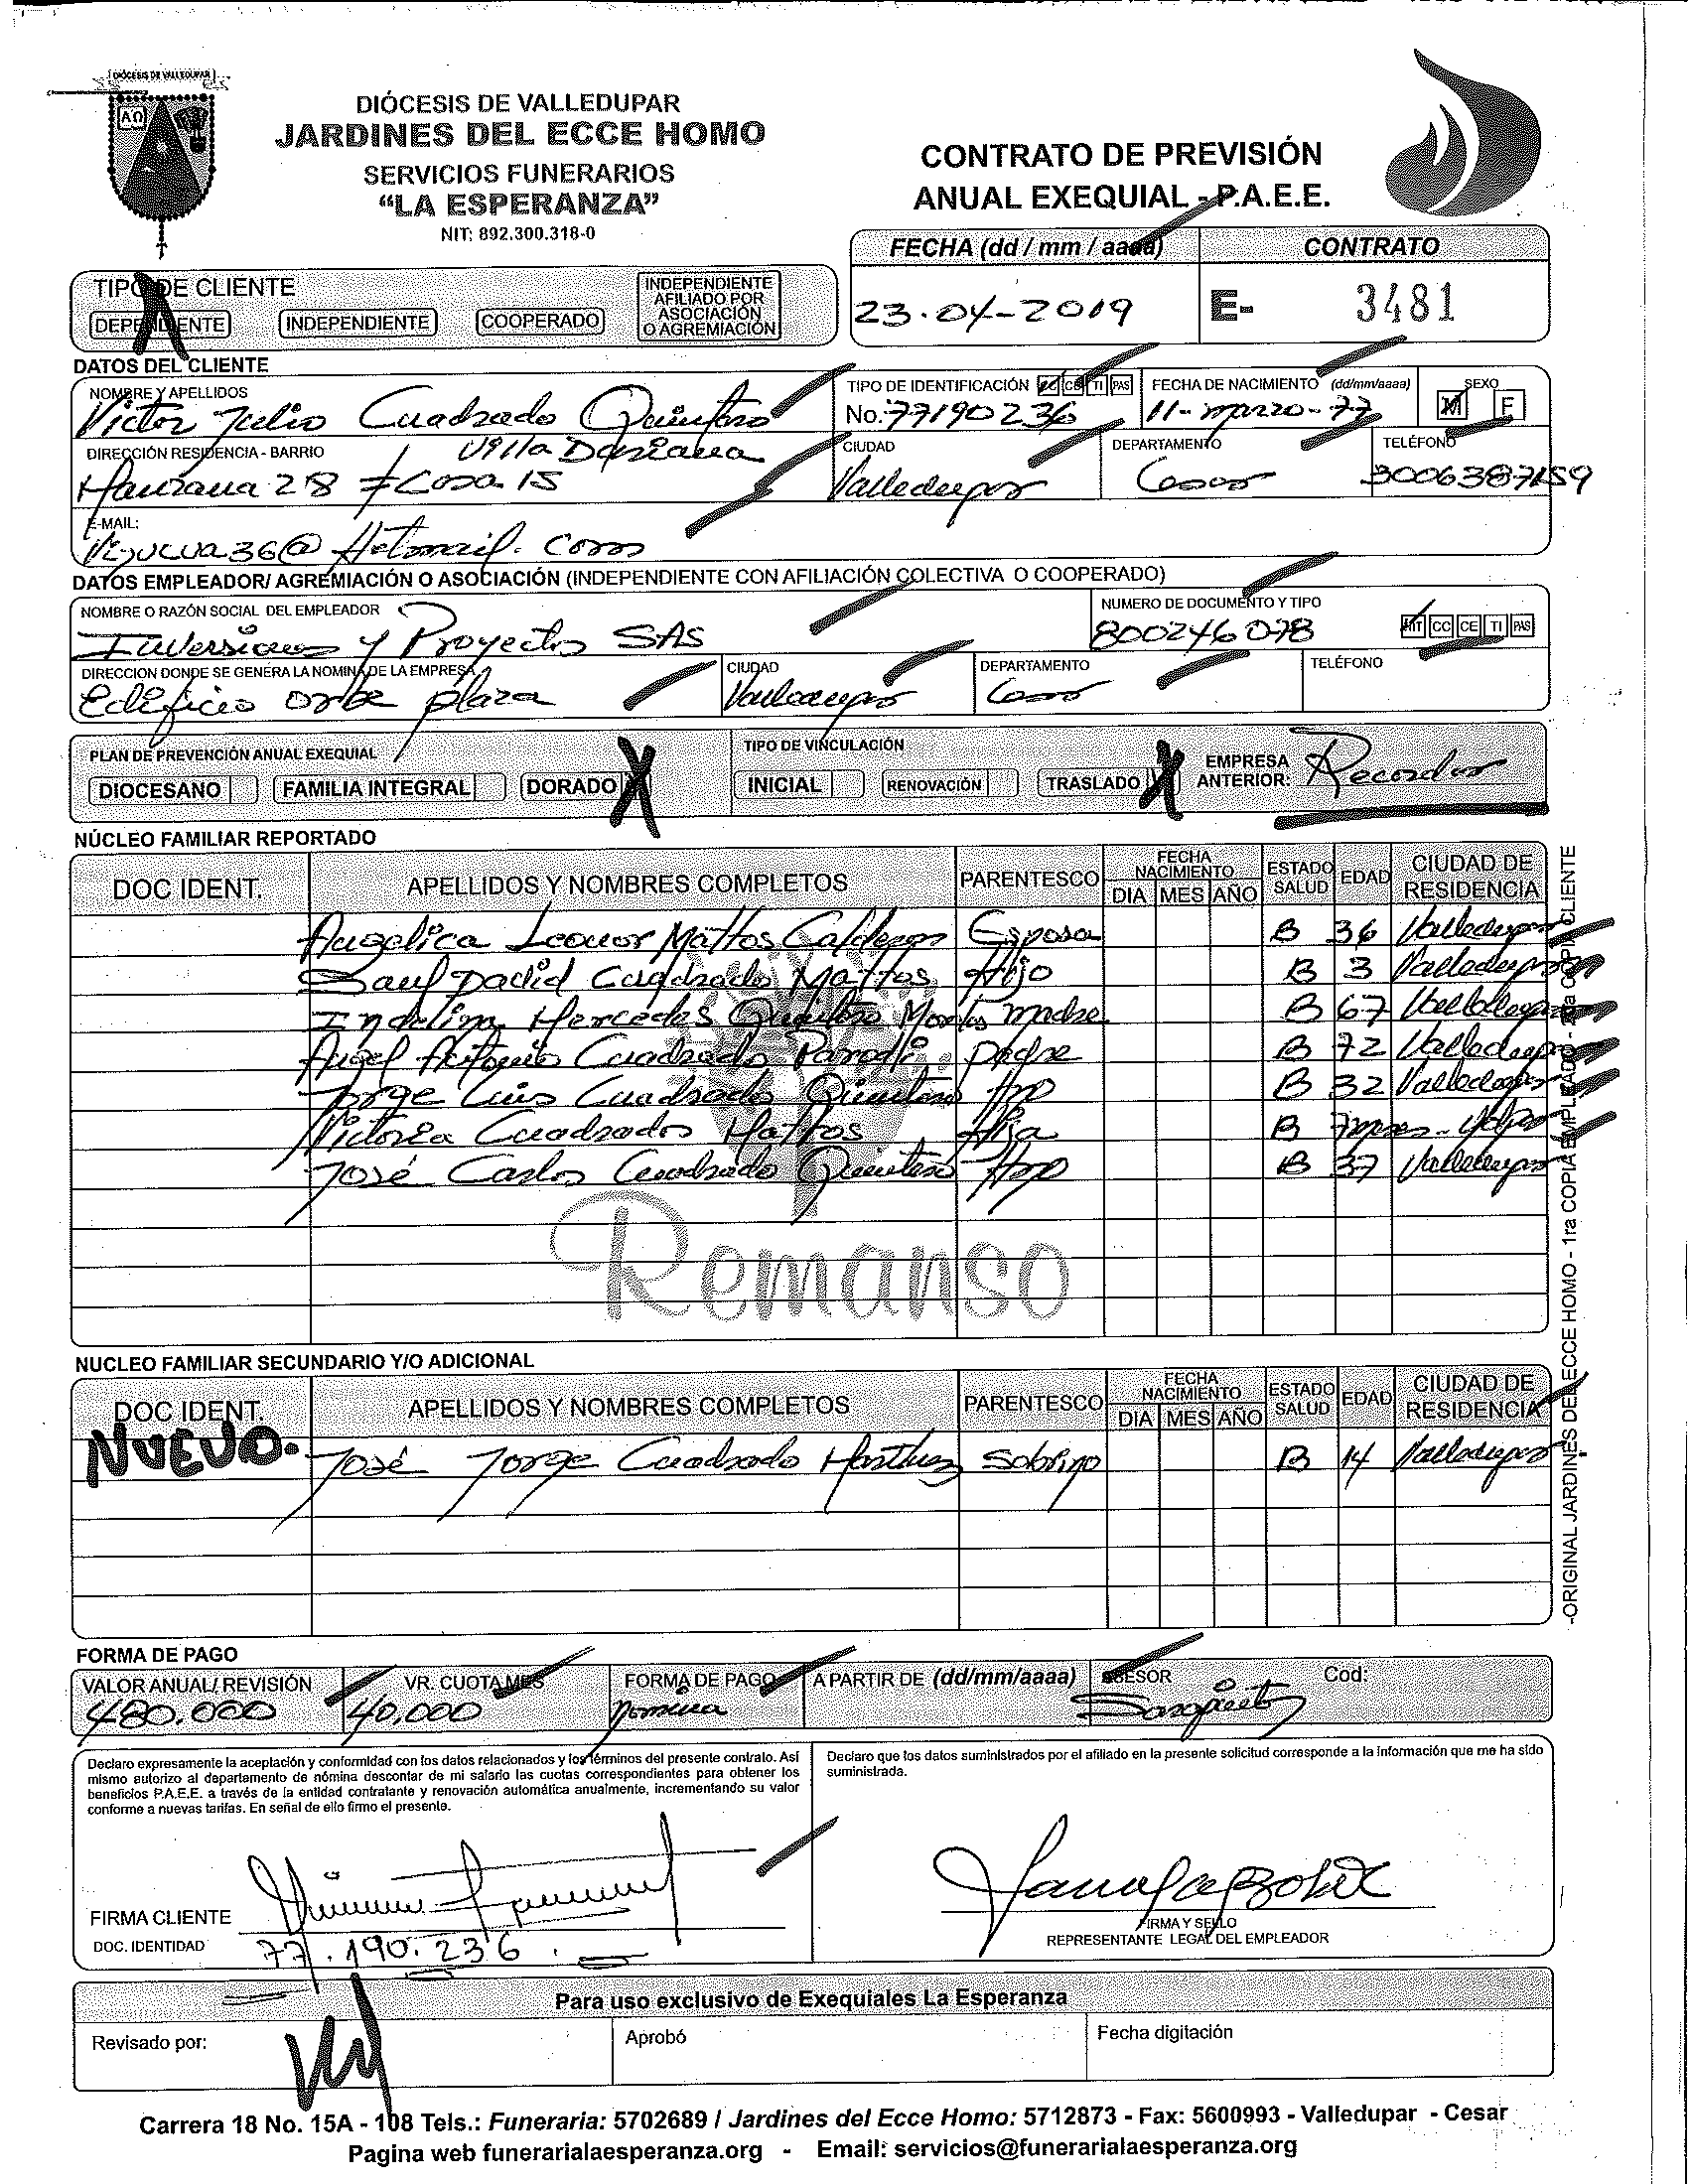 DIÓCESIS DE VALLEDUPAR
DIÓCESIS DE VALLEDUPAR
JARDINES DEL ECCE HOMO
SERVICIOS FUNERARIOS
“LA ESPERANZA”
NIT: 892.300.318-0
CONTRATO DE PREVISIÓN
ANUAL EXEQUIAL - P.A.E.E.
FECHA (dd / mm / aaaa) CONTRATO
23-04-2019 E- 3481
TIPO DE CLIENTE
DEPENDIENTE INDEPENDIENTE COOPERADO INDEPENDIENTE AFILIADO POR ASOCIACIÓN O AGREMIACIÓN
DATOS DEL CLIENTE
NOMBRE Y APELLIDOS TIPO DE IDENTIFICACIÓN CC CE TI PAS FECHA DE NACIMIENTO (dd/mm/aaaa) SEXO
Victor Julio Cuadrado Quintero No. 77190236 11-marzo-77 M F
DIRECCIÓN RESIDENCIA - BARRIO CIUDAD DEPARTAMENTO TELÉFONO
Villa Dariana
Manzana 28 # Casa 15 Valledupar Cesar 3006387159
E-MAIL:
Vijucua36@Hotmail.com
DATOS EMPLEADOR/ AGREMIACIÓN O ASOCIACIÓN (INDEPENDIENTE CON AFILIACIÓN COLECTIVA O COOPERADO)
NOMBRE O RAZÓN SOCIAL DEL EMPLEADOR NUMERO DE DOCUMENTO Y TIPO
Inversiones y Proyectos SAS 800246078 NIT CC CE TI PAS
DIRECCION DONDE SE GENERA LA NOMINA DE LA EMPRESA CIUDAD DEPARTAMENTO TELÉFONO
Edificio orbe plaza Valledupar Cesar
PLAN DE PREVENCIÓN ANUAL EXEQUIAL TIPO DE VINCULACIÓN
DIOCESANO FAMILIA INTEGRAL DORADO X INICIAL RENOVACIÓN TRASLADO X EMPRESA ANTERIOR: Recordar
NÚCLEO FAMILIAR REPORTADO
DOC IDENT. APELLIDOS Y NOMBRES COMPLETOS PARENTESCO FECHA NACIMIENTO DIA MES AÑO ESTADO SALUD EDAD CIUDAD DE RESIDENCIA
Angelica Leonor Mattos Calderon Esposa B 36 Valledupar
Saul David Cuadrado Mattos Hijo B 3 Valledupar
Indelina Mercedes Quintero Montes madre B 67 Valledupar
Angel Antonio Cuadrado Parodi padre B 72 Valledupar
Jorge Luis Cuadrado Quintero Hno B 32 Valledupar
Victoria Cuadrados Mattos Hija B 7meses - Vdpar
José Carlos Cuadrado Quintero Hno B 37 Valledupar
Remanso
NUCLEO FAMILIAR SECUNDARIO Y/O ADICIONAL
DOC IDENT. APELLIDOS Y NOMBRES COMPLETOS PARENTESCO FECHA NACIMIENTO DIA MES AÑO ESTADO SALUD EDAD CIUDAD DE RESIDENCIA
NUEVO. José Jorge Cuadrado Martinez Sobrino B 14 Valledupar
-ORIGINAL JARDINES DEL ECCE HOMO - 1ra COPIA EMPLEADO - 2da COPIA CLIENTE
FORMA DE PAGO
VALOR ANUAL/ REVISIÓN VR. CUOTA MES FORMA DE PAGO A PARTIR DE (dd/mm/aaaa) ASESOR Cod:
480.000 40,000 nomina
Declaro expresamente la aceptación y conformidad con los datos relacionados y los términos del presente contrato. Así
mismo autorizo al departamento de nómina descontar de mi salario las cuotas correspondientes para obtener los
beneficios P.A.E.E. a través de la entidad contratante y renovación automática anualmente, incrementando su valor
conforme a nuevas tarifas. En señal de ello firmo el presente.
Declaro que los datos suministrados por el afiliado en la presente solicitud corresponde a la información que me ha sido
suministrada.
FIRMA CLIENTE
DOC. IDENTIDAD 77.190.236
FIRMA Y SELLO
REPRESENTANTE LEGAL DEL EMPLEADOR
Para uso exclusivo de Exequiales La Esperanza
Revisado por: Aprobó Fecha digitación
Carrera 18 No. 15A - 108 Tels.: Funeraria: 5702689 / Jardines del Ecce Homo: 5712873 - Fax: 5600993 - Valledupar - Cesar
Pagina web funerarialaesperanza.org - Email: servicios@funerarialaesperanza.org